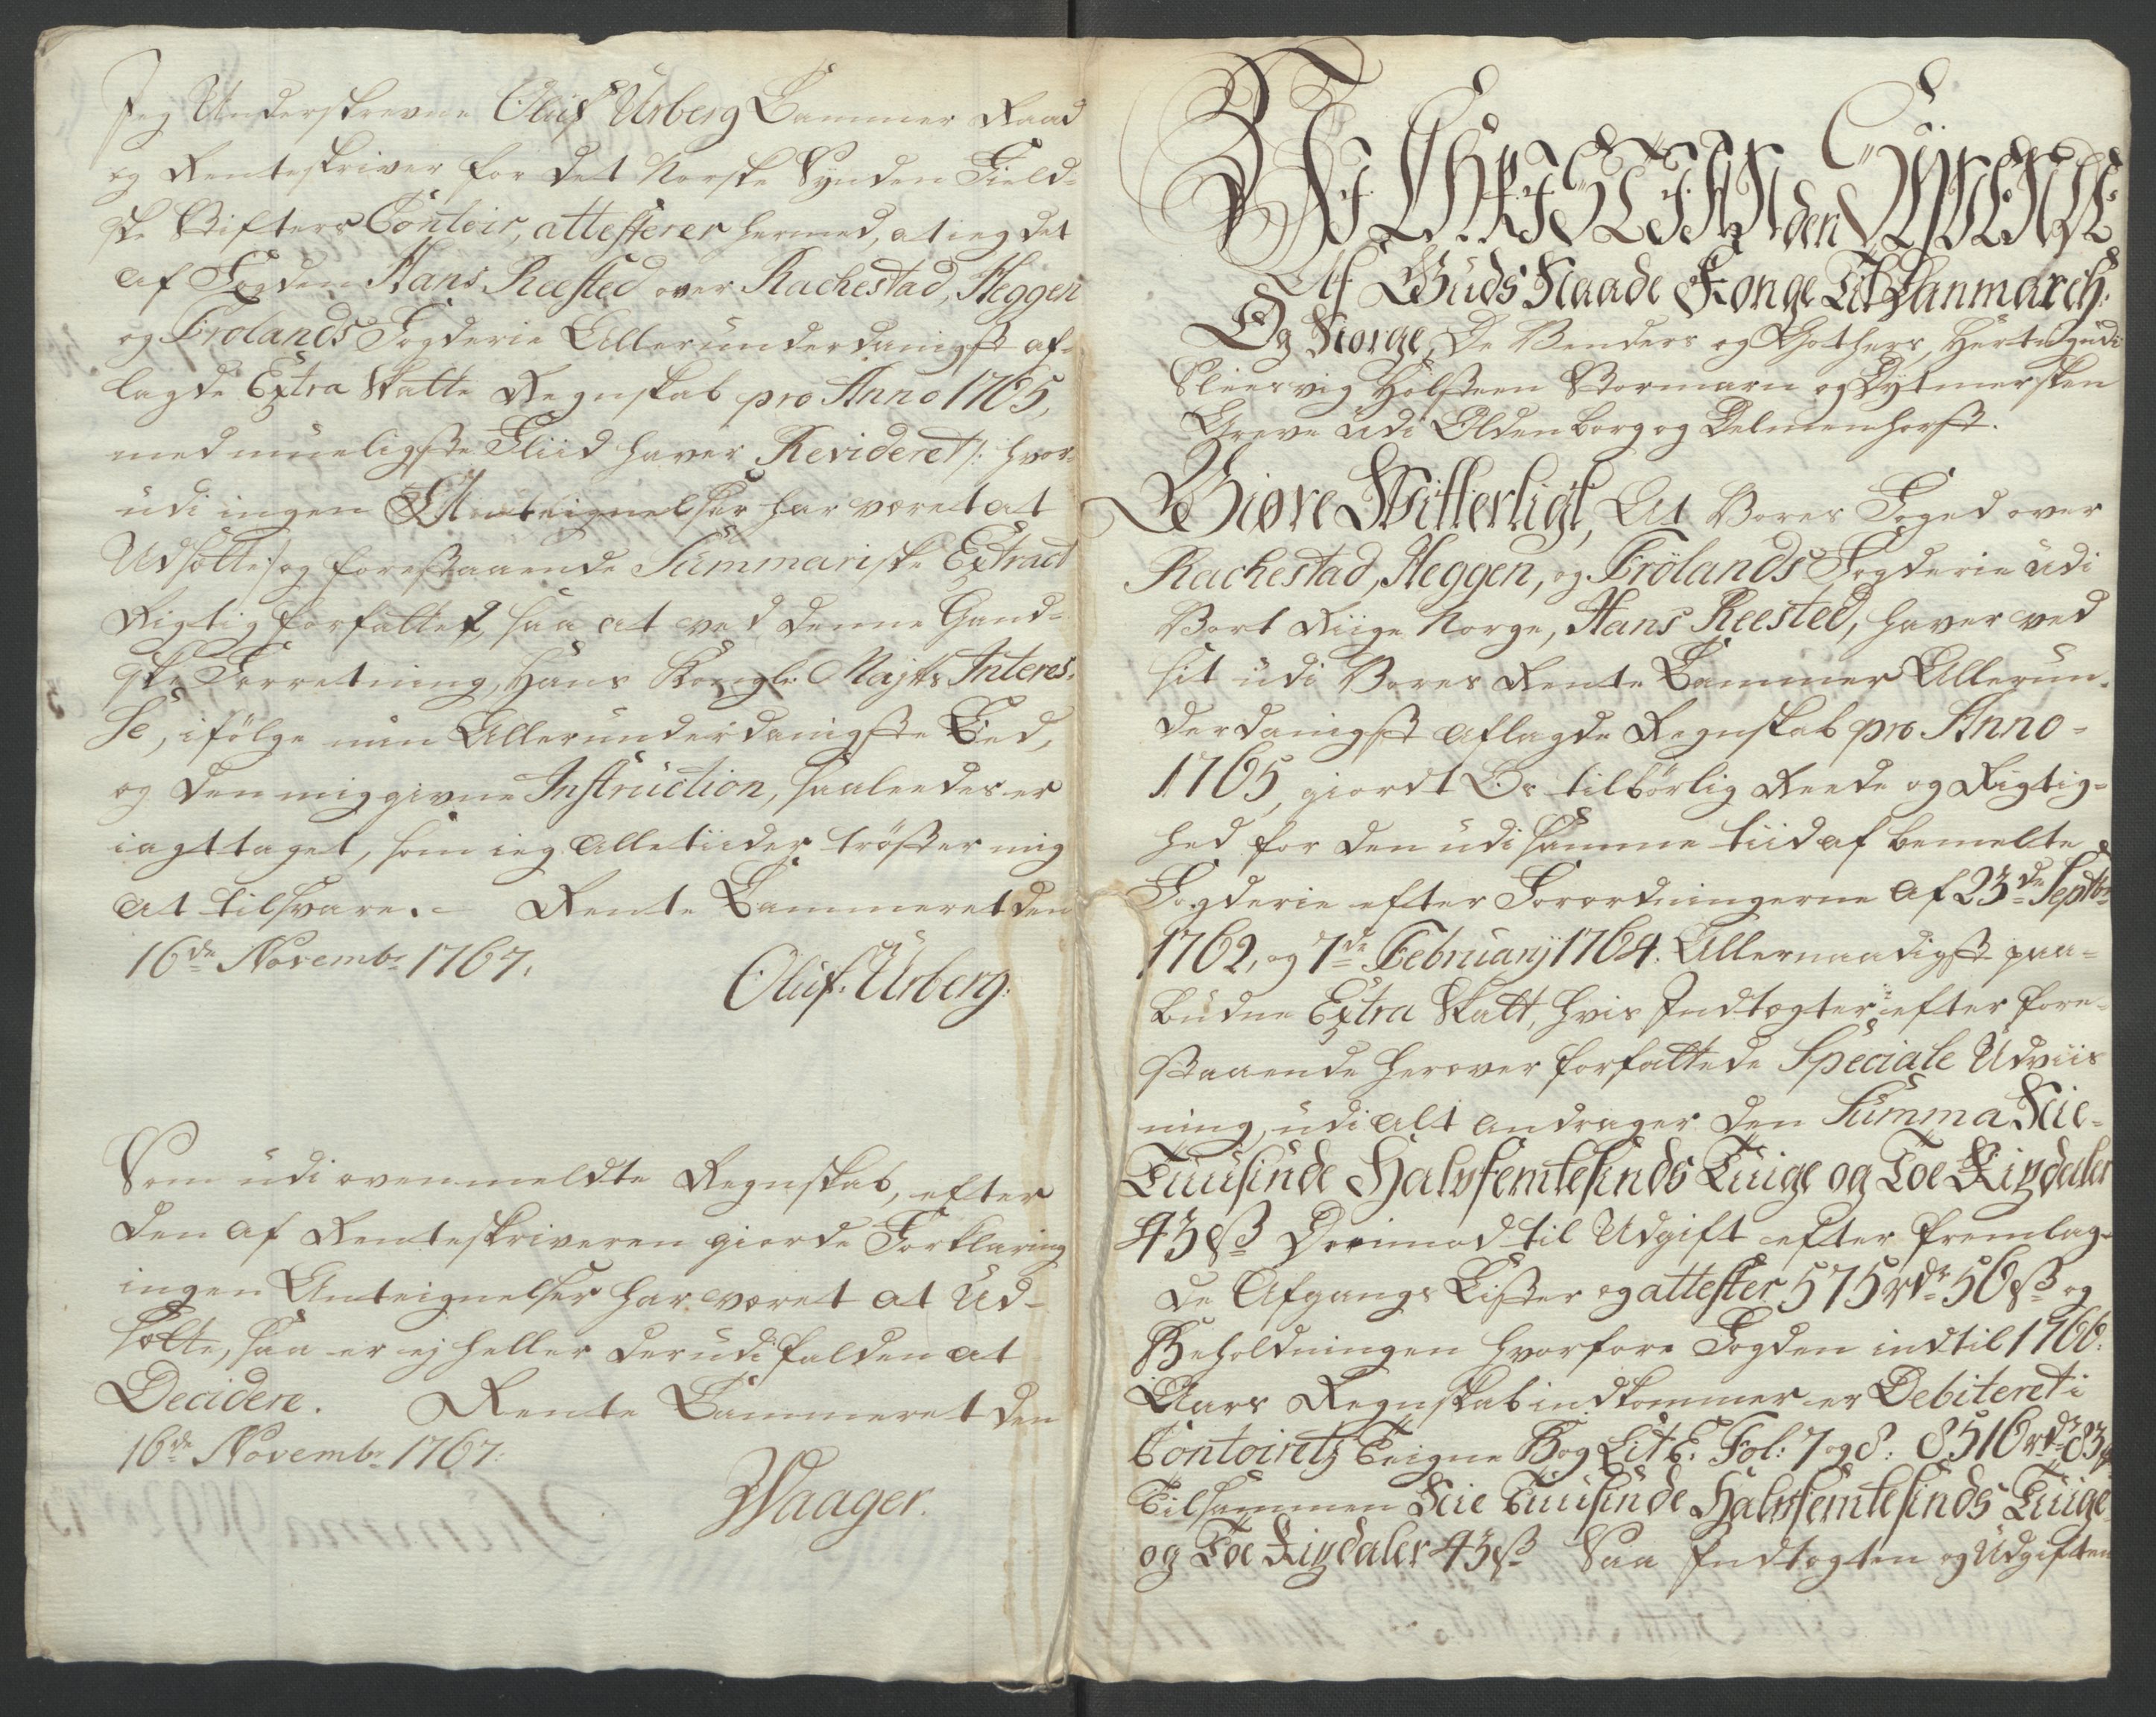 Jeg Underskrevne Oluf Urberg Cammer Raad
og Renteskriver for det Norske Synden Field-
ske Stifters Contoir, attesterer hermed, at ieg det
af Fogden Hans Reested over Rachestad, Heggen
og Frølands Fogderie Allerunderdanigst af-
lagde Extra Skatte Regnskab pro Anno 1765,
med mueligste Fliid haver Revideret /: hvor-
udi ingen Anteignelser har været at
Udsætte :/ og forestaaende Summariske Extract
Rigtig forfattet, saa at ved denne Gand-
ske Forretning, Hans Kongl: Majts Interes-
se, ifølge min Allerunderdanigste Eed,
og den mig givne Instruction, saaleedes er
iagttaget, som ieg alletiider trøster mig
at tilsvare. - Rente Cammeret den
16de Novembr 1767.
Oluf Urberg.
Som udi ovenmeldte Regnskab, efter
den af Renteskriveren giorde Forklaring
ingen Anteignelser har været at Ud-
sætte, saa er ej heller derudi falden at
Decidere. Rente Cammeret den
16de Novembr 1767.
Waager.
Wi CHRISTIAN den SYVENDE
Af Guds Naade Konge Til Danmarch
Og Norge, De Venders og Gothers, Hertug udi
Sleesvig Holsteen Stormarn og Dytmersken
Greve udi Oldenborg og Delmenhorst.
Giøre Witterligt, At Vores Foged over
Rachestad, Heggen, og Frølands Fogderie udi
Vort Riige Norge, Hans Reested, haver ved
sit udi Vores Rente Cammer Allerun-
derdanigst aflagde Regnskab pro Anno
1765, giordt Os tilbørlig Reede og Rigtig-
hed for den udi samme tiid af bemelte
Fogderie efter Forordningerne af 23de Septbr
1762, og 7de Februarij 1764. Allernaadigst paa-
budne Extra Skatt, hvis Indtægter efter fore-
staaende herover forfattede Speciale Udviis
ning, udi alt andrager den Summa Nie-
Tuusinde Halvfemtesinds Tuige og Toe Rixdaler
43 ß Derimod til Udgift efter fremlag-
de Afgangs Lister og attester 575 rdr 56 ß og
Beholdningen hvorfore Fogden indtil 1766
Aars Regnskab indkommer er Debiteret i
Contoirets Teigne Bog Lit E. Fol: 7 og 8: 8516 rdr 83 ß
Tilsammen Nie Tuusinde Halvfemtesinds Tuige
og Toe Rixdaler 43 ß Saa Indtægten og Udgiften